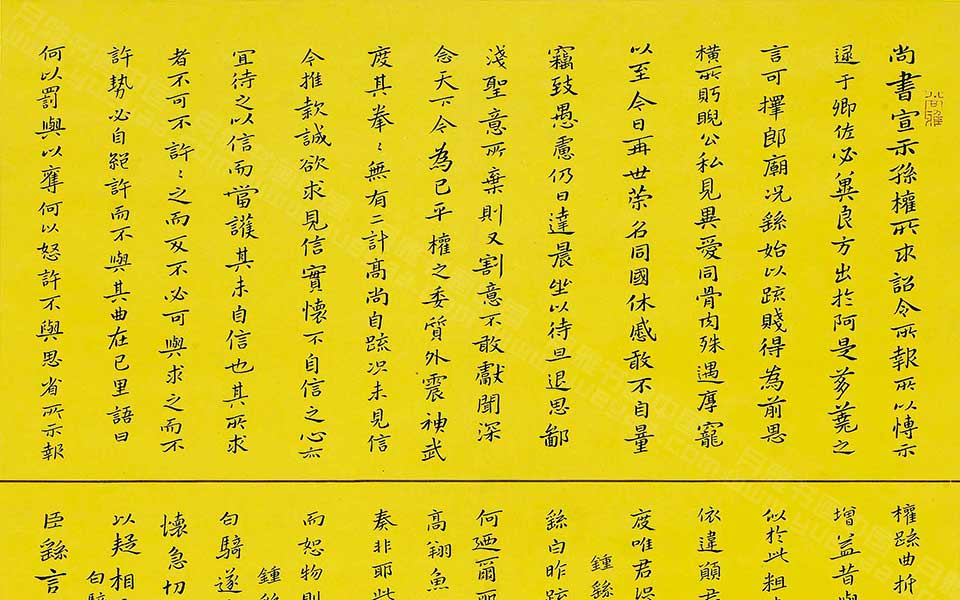 尚書宣示孫權所求詔令所報所以博示
逮于卿佐必冀良方出於阿是芻蕘之
言可擇郎廟況繇始以疏賤得為前恩
橫所眄睨公私見異愛同骨肉殊遇厚寵
以至今日再世榮名同國休慼敢不自量
竊致愚慮仍日達晨坐以待旦退思鄙
淺聖意所棄則又割意不敢獻聞深
念天下今為已平權之委質外震神武
度其拳〻無有二計高尚自疏況未見信
今推款誠欲求見信實懷不自信之心亦
宜待之以信而當護其未自信也其所求
者不可不許〻之而反不必可與求之而不
許勢必自絕許而不與其曲在己里語曰
何以罰與以奪何以怒許不與思省所示報
權疏曲折
增益昔與
似於此粗
依違顛君
度唯君
鍾繇
繇白昨疏
何廼爾
高翔魚
奏非耶此
而恕物則
鍾繇
白騎遂
懷急切
以疑相
白騎
臣繇言